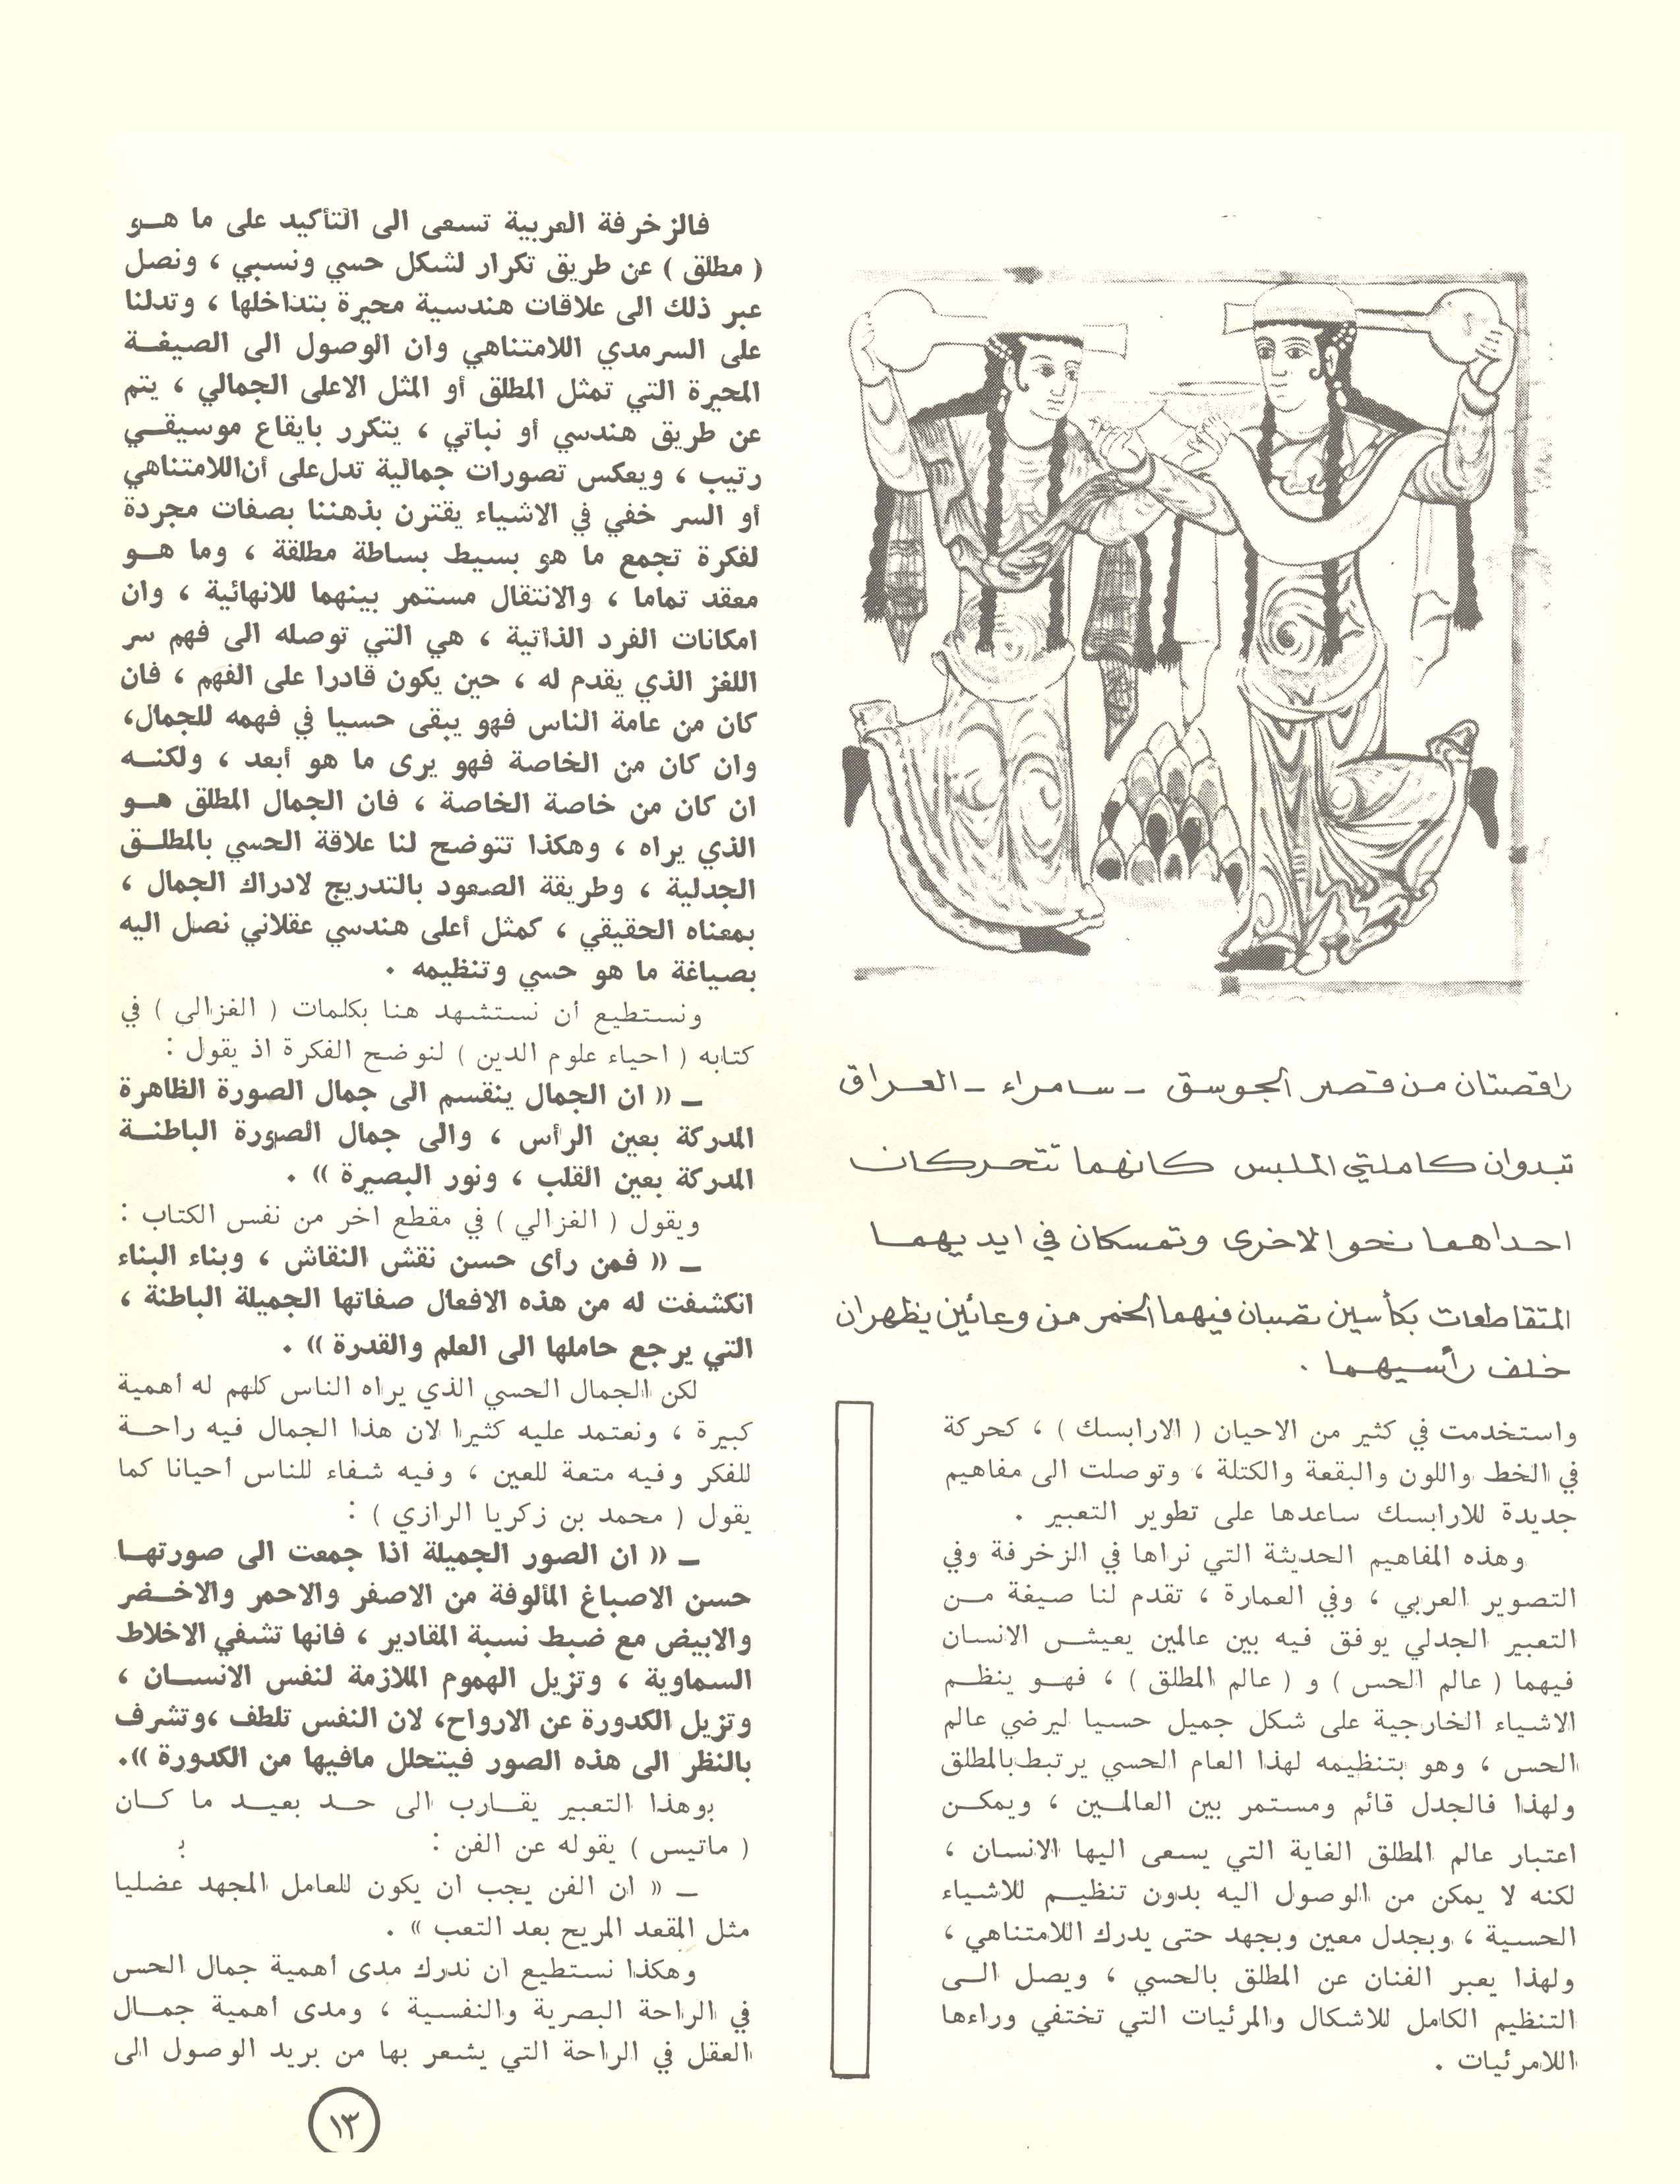 راقصتان من قصر الجوسق - سامراء - العراق
تبدوان كاملتي الملبس كانهما تتحركان
احداهما نحو الاخرى وتمسكان في ايديهما
المتقاطعات بكأسين تصبان فيهما الخمر من وعائين يظهران
خلف رأسيهما .
واستخدمت في كثير من الاحيان ( الارابسك ) ، كحركة
في الخط واللون والبقعة والكتلة ، وتوصلت الى مفاهيم
جديدة للارابسك ساعدها على تطوير التعبير .
وهذه المفاهيم الحديثة التي نراها في الزخرفة وفي
التصوير العربي ، وفي العمارة ، تقدم لنا صيغة مـن
التعبير الجدلي يوفق فيه بين عالمين يعيش الانسان
فيهما ( عالم الحس ) و ( عالم المطلق ) ، فهـو ينظـم
الاشياء الخارجية على شكل جميل حسيا ليرضي عالم
الحس ، وهو بتنظيمه لهذا العام الحسي يرتبط بالمطلق
ولهذا فالجدل قائم ومستمر بين العالمـين ، ويمكـن
اعتبار عالم المطلق الغاية التي يسعى اليها الانسان ،
لكنه لا يمكن من الوصول اليه بدون تنظيـم للاشياء
الحسية ، وبجدل معين وبجهد حتى يدرك اللامتناهي ،
ولهذا يعبر الفنان عن المطلق بالحسي ، ويصل الـى
التنظيم الكامل للاشكال والمرئيات التي تختفي وراءها
اللامرئيات .
فالزخرفة العربية تسعى الى التأكيد على ما هـو
( مطلق ) عن طريق تكرار لشكل حسي ونسبي ، ونصل
عبر ذلك الى علاقات هندسية محيرة بتداخلها ، وتدلنا
على السرمدي اللامتناهي وان الوصول الى الصيغـة
المحيرة التي تمثل المطلق أو المثل الاعلى الجمالي ، يتم
عن طريق هندسي أو نباتي ، يتكرر بايقاع موسيقـي
رتيب ، ويعكس تصورات جمالية تدل على أن اللامتناهي
أو السر خفي في الاشياء يقترن بذهننا بصفات مجردة
لفكرة تجمع ما هو بسيط بساطة مطلقة ، وما هـو
معقد تماما ، والانتقال مستمر بينهما للانهائية ، وان
امكانات الفرد الذاتية ، هي التي توصله الى فهم سر
اللغز الذي يقدم له ، حين يكون قادرا على الفهم ، فان
كان من عامة الناس فهو يبقى حسيا في فهمه للجمال،
وان كان من الخاصة فهو يرى ما هو أبعد ، ولكنـه
ان كان من خاصة الخاصة ، فان الجمال المطلق هـو
الذي يراه ، وهكذا تتوضح لنا علاقة الحسي بالمطلـق
الجدلية ، وطريقة الصعود بالتدريج لادراك الجمال ،
بمعناه الحقيقي ، كمثل أعلى هندسي عقلاني نصل اليه
بصياغة ما هو حسي وتنظيمه .
ونستطيع أن نستشهد هنا بكلمات ( الغزالي ) في
كتابه ( احياء علوم الدين ) لنوضح الفكرة اذ يقول :
ـ « ان الجمال ينقسم الى جمال الصورة الظاهرة
المدركة بعين الرأس ، والى جمال الصورة الباطنـة
المدركة بعين القلب ، ونور البصيرة » .
ويقول ( الغزالي ) في مقطع اخر من نفس الكتاب :
ـ « فمن رأى حسن نقش النقاش ، وبناء البناء
انكشفت له من هذه الافعال صفاتها الجميلة الباطنة ،
التي يرجع حاملها الى العلم والقدرة » .
لكن الجمال الحسي الذي يراه الناس كلهم له أهمية
كبيرة ، ونعتمد عليه كثيرا لان هذا الجمال فيه راحـة
للفكر وفيه متعة للعين ، وفيه شفاء للناس أحيانا كما
يقول ( محمد بن زكريا الرازي ) :
ـ « ان الصور الجميلة اذا جمعت الى صورتهـا
حسن الاصباغ المألوفة من الاصفر والاحمر والاخـضر
والابيض مع ضبط نسبة المقادير ، فانها تشفي الاخلاط
السماوية ، وتزيل الهموم الملازمة لنفس الانسـان ،
وتزيل الكدورة عن الارواح، لان النفس تلطف ،وتشرف
بالنظر الى هذه الصور فيتحلل مافيها من الكدورة ».
بوهذا التعبير يقـارب الى حـد بعيـد ما كـان
( ماتيس ) يقوله عن الفن :
ـ « ان الفن يجب ان يكون للعامل المجهد عضليا
مثل المقعد المريح بعد التعب » .
وهكذا نستطيع أن ندرك مدى أهمية جمال الحس
في الراحة البصرية والنفسية ، ومدى أهمية جمـال
العقل في الراحة التي يشعر بها من بريد الوصول الى
١٣